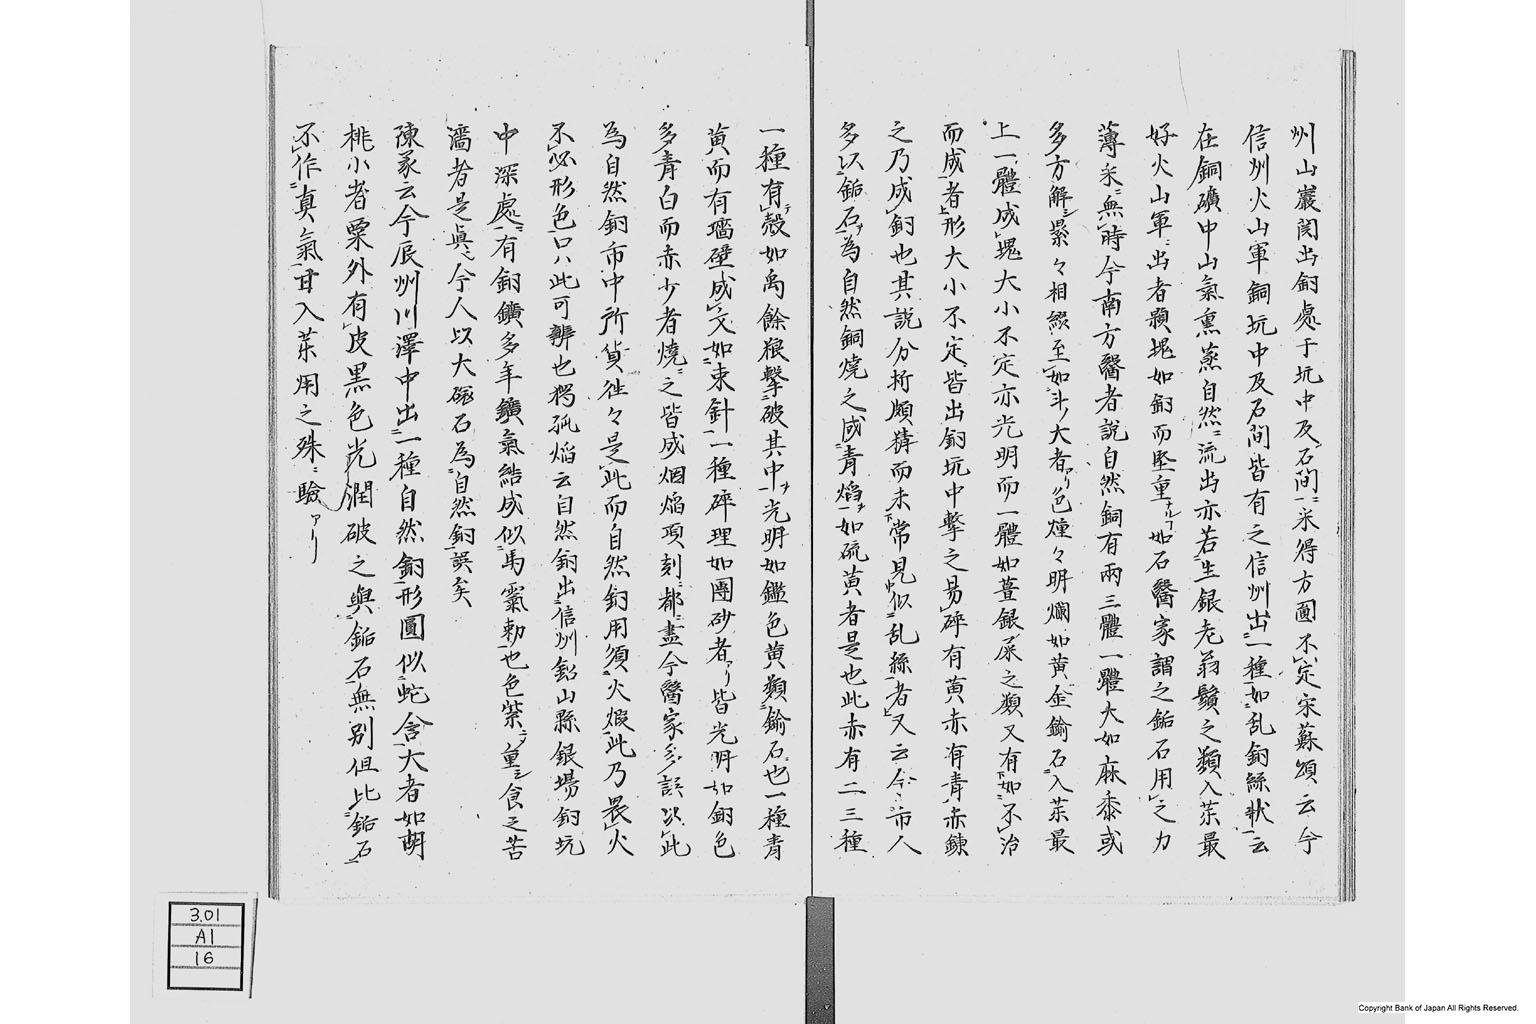 州山巖間出銅處于坑中及石間ニ采得方圓不定宋蘇頌云今
信州火山軍銅坑中及石間皆有之信州出一種如乱銅絲状云
在銅礦中山氣熏蒸自然ニ流出亦若生銀老翁鬚之類入茶最
好火山軍ニ出者顆塊如銅而堅重ナルコ如石醫家謂之鉐石用之力
薄采無時今南方醫者說自然銅有兩三體一體大如麻黍或
多方解累々相綴至如斗ノ大者アリ色煌々明爛如黃金鍮石入茶最
上一體成塊大小不定亦光明而一體如薑銀屎之類又有如不冶
而成者形大小不定皆出銅坑中擊之易碎有黃赤有青赤鍊
之乃成銅也其說分析頗精而未常見似乱絲者又云今市人
多以鉐石為自然銅燒之成青焰如硫黃者是也此亦有二三種
一種有殼如禹餘粮擊破其中光明如鑑色黄類鍮石也一種青
黄而有墻壁成文如束針一種碎理如團砂者アリ皆光明如銅色
多青白而赤少者燒之皆成烟焰頃刻都盡今醫家多誤以此
為自然銅市中所貨徃々是此而自然銅用須火煆此乃畏火
不必形色只此可辨也獨孤焰云自然銅出信州鉛山縣銀場銅坑
中深處有銅鑛多年鑛氣結成似馬氣勃也色紫重シ食之苦
濇者是眞今人以大碗石為自然銅誤矣
陳家云今辰州川澤中出一種自然銅形圓似蛇含大者如胡
桃小者粟外有皮黑色光潤破之與鉐石無別但比鉐石
不作真氣耳入茶用之殊ニ驗アリ
3.01
A1
16
Copyright Bank of Japan All Rights Reserved.